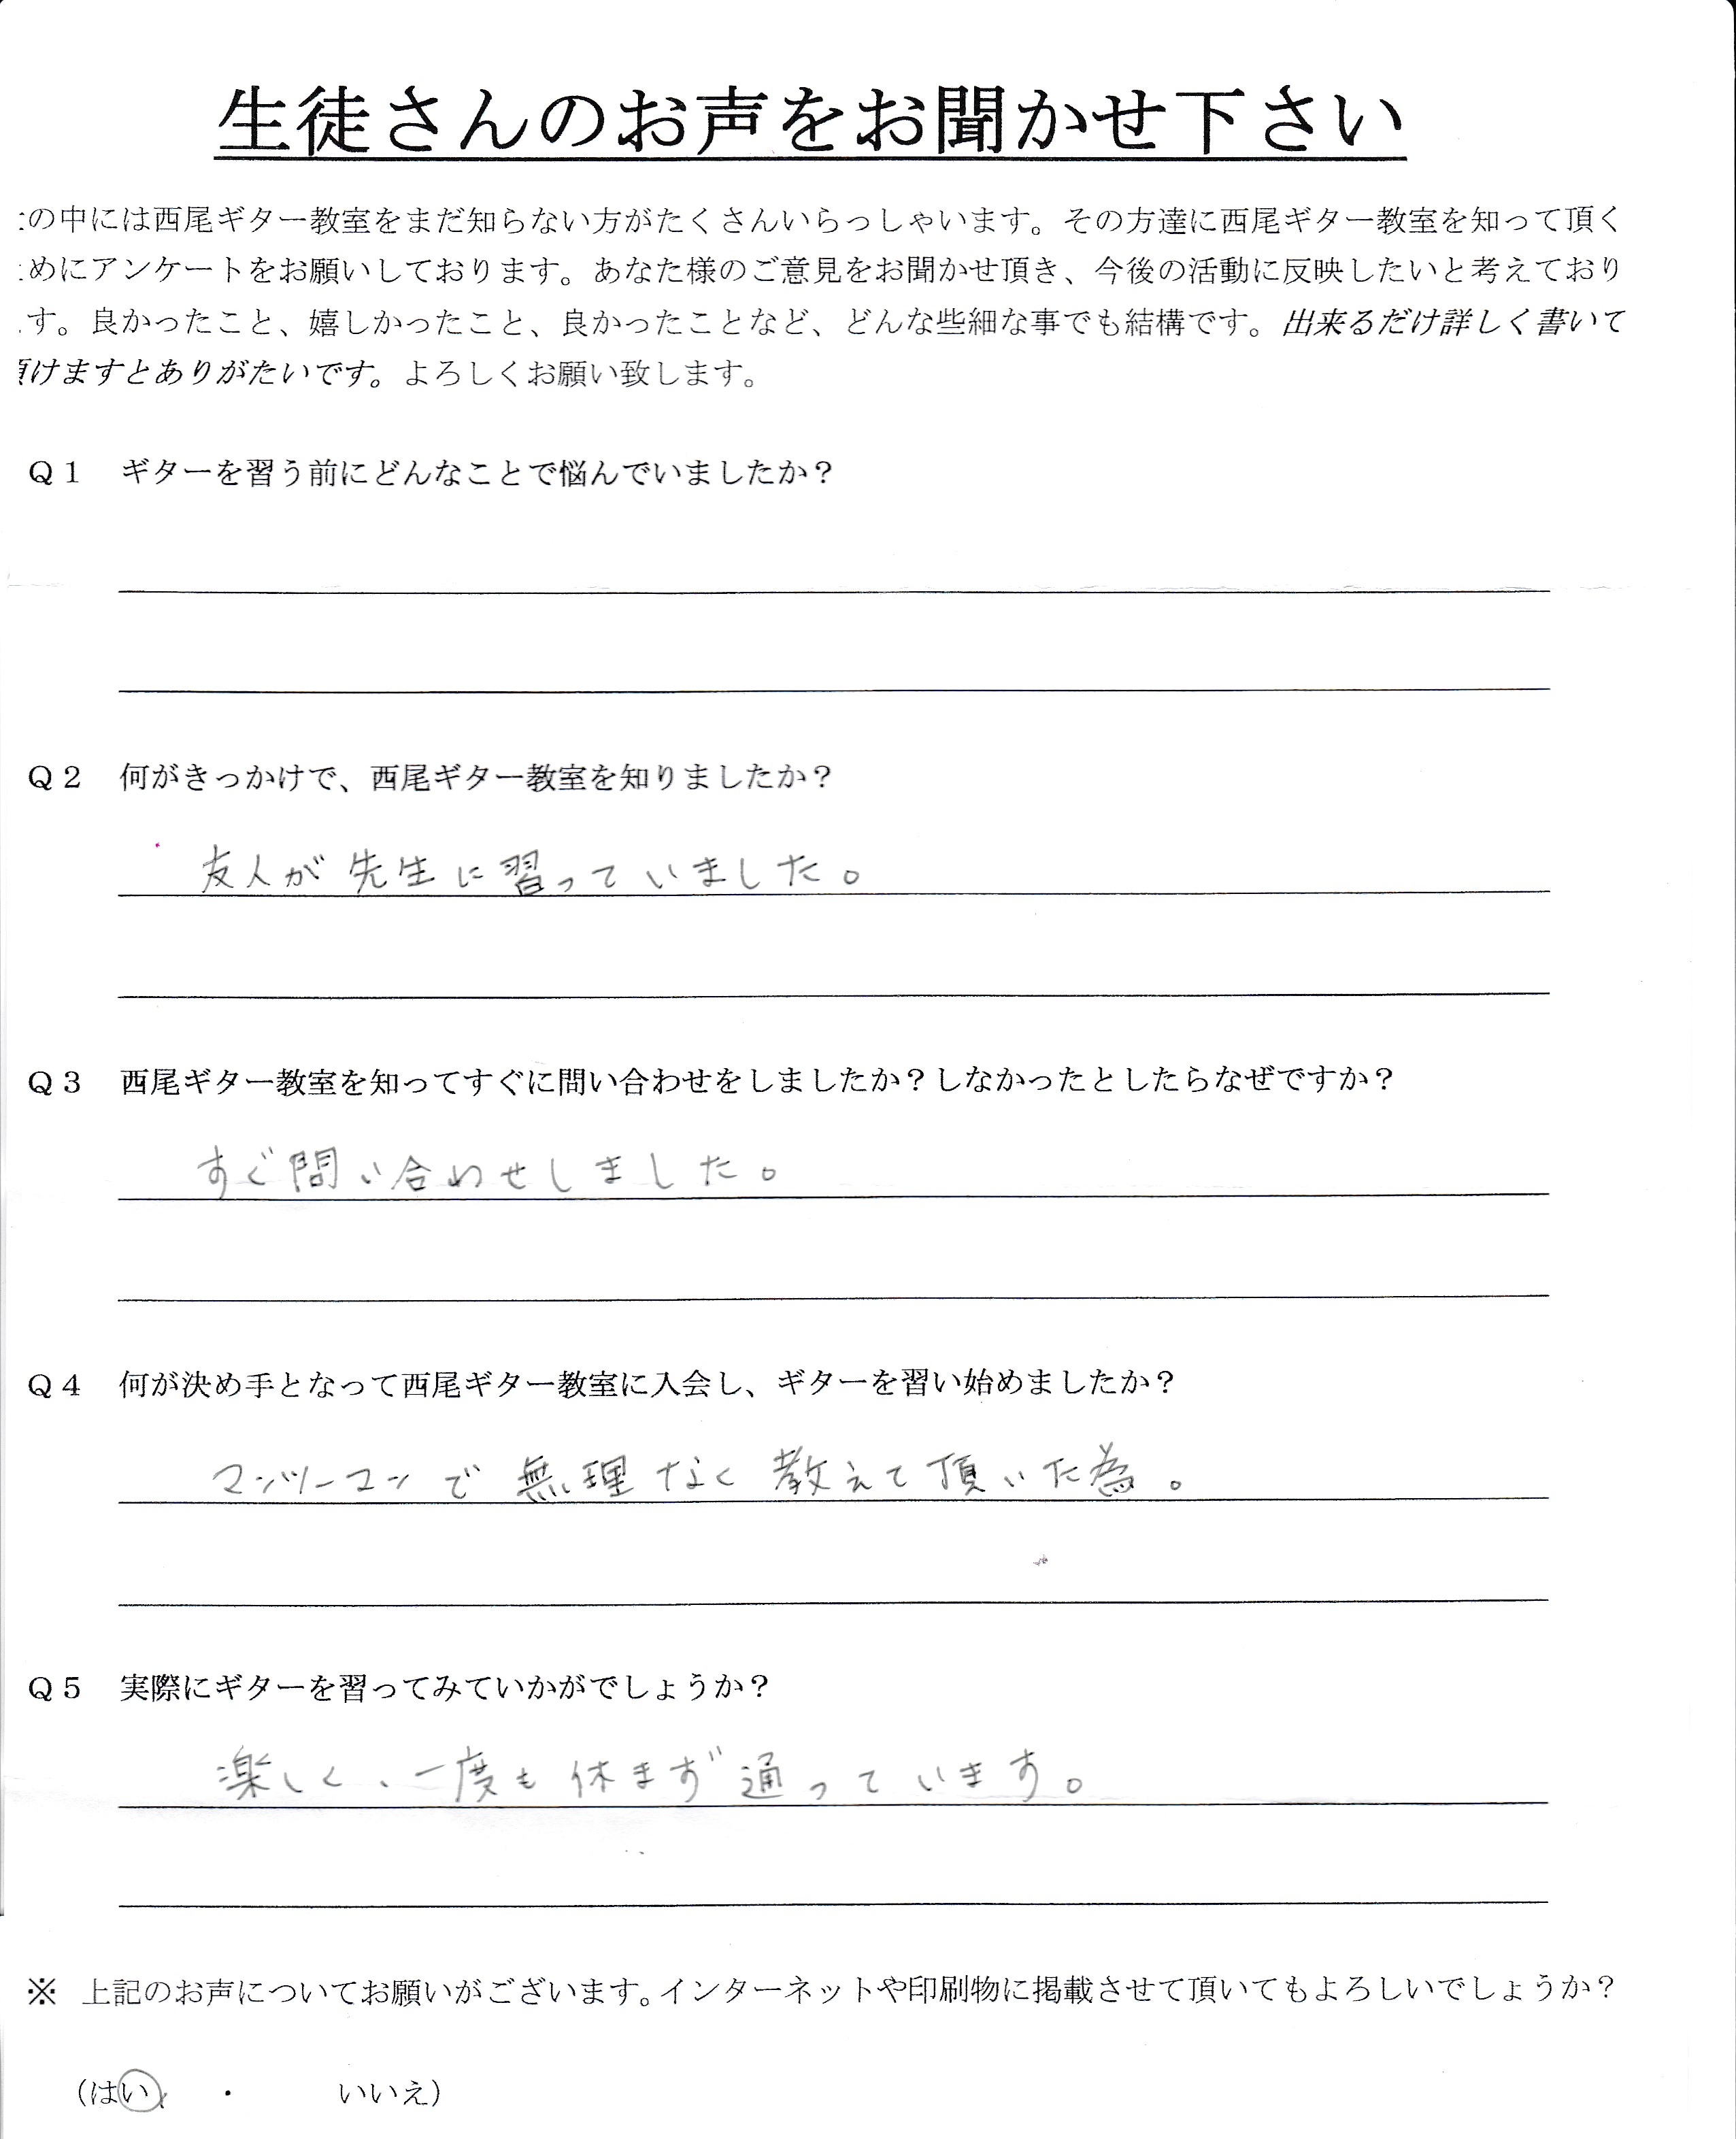 生徒さんのお声をお聞かせ下さい
の中には西尾ギター教室をまだ知らない方がたくさんいらっしゃいます。その方達に西尾ギター教室を知って頂く
めにアンケートをお願いしております。あなた様のご意見をお聞かせ頂き、今後の活動に反映したいと考えており
す。良かったこと、嬉しかったこと、良かったことなど、どんな些細な事でも結構です。出来るだけ詳しく書いて
けますとありがたいです。よろしくお願い致します。
Q1 ギターを習う前にどんなことで悩んでいましたか？
Q2 何がきっかけで、西尾ギター教室を知りましたか？
友人が先生に習っていました。
Q3 西尾ギター教室を知ってすぐに問い合わせをしましたか？しなかったとしたらなぜですか？
すぐ問い合わせしました。
Q4 何が決め手となって西尾ギター教室に入会し、ギターを習い始めましたか？
マンツーマンで無理なく教えて頂いた為。
Q5 実際にギターを習ってみていかがでしょうか？
楽しく、一度も休まず通っています。
※ 上記のお声についてお願いがございます。インターネットや印刷物に掲載させて頂いてもよろしいでしょうか？
（はい ・ いいえ）